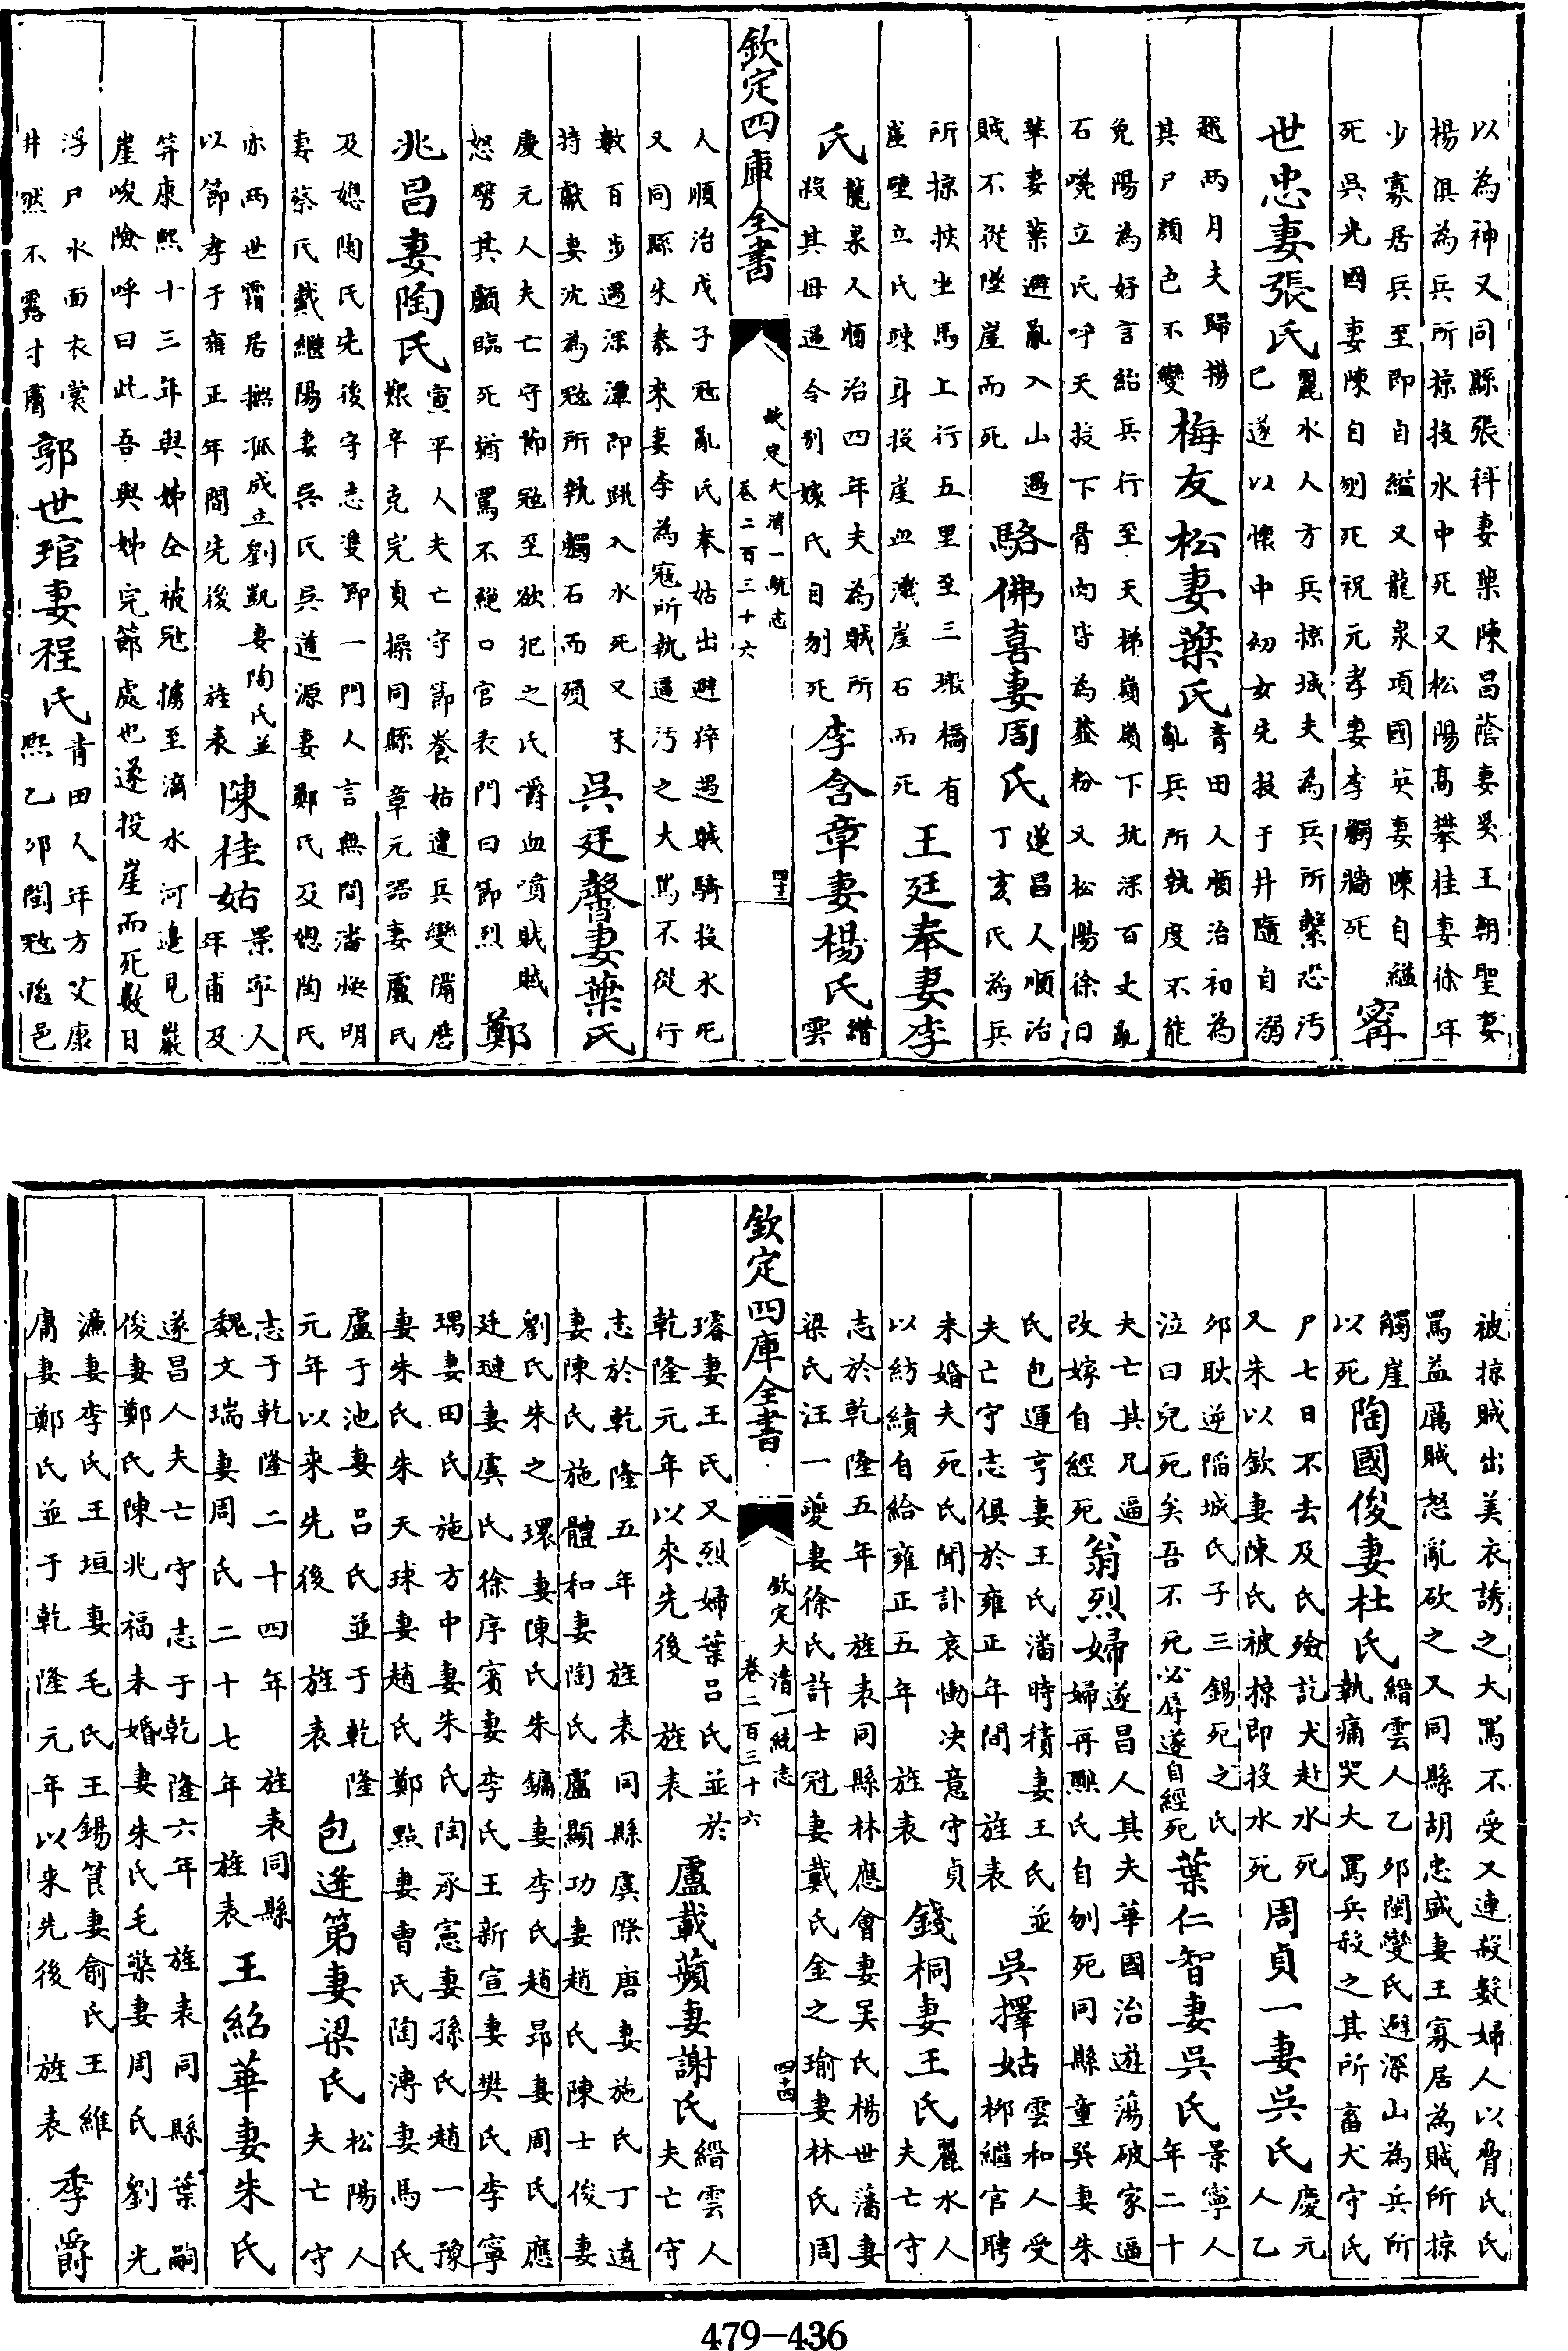 以為神又同縣張科妻葉陳昌蔭妻吳王朝聖妻
楊俱為兵所掠投水中死又松陽高攀桂妻徐年
少寡居兵至即自縊又龍泉項國英妻陳自縊
死吳光國妻陳自刎死祝元孝妻李觸牆死 甯
世忠妻張氏麗水人方兵掠城夫為兵所繫恐污
已遂以懷中初女先投于井隨自溺
越兩月夫歸撈
其尸顔色不變梅友松妻葉氏青田人順治初為
亂兵所執度不能
免陽為好言紿兵行至天梯嶺嶺下坑深百丈亂
石巉立氏呼天投下骨肉皆為虀粉又松陽徐日
華妻葉避亂入山遇
賊不從墜崖而死 駱佛喜妻周氏遂昌人順治
丁亥氏為兵
所掠挾坐馬上行五里至三墩橋有
崖壁立氏竦身投崖血濺崖石而死 王廷奉妻李
氏龍泉人順治四年夫為賊所
殺其母逼令别嫁氏自刎死 李含章妻楊氏縉
雲
欽定四庫全書
欽定大清一統志
卷二百三十六
四十三
人順治戊子冦亂氏奉姑出避猝遇賊騎投水死
又同縣朱泰來妻李為寇所執逼污之大罵不從行
數百步遇深潭即跳入水死又朱
持獻妻沈為冦所執觸石而殞 吳廷馨妻葉氏
慶元人夫亡守節冦至欲犯之氏嚼血噴賊賊
怒劈其顱臨死猶罵不絶口官表門曰節烈 鄭
兆昌妻陶氏宣平人夫亡守節養姑遭兵變備歴
艱辛克完貞操同縣章元器妻盧氏
及媳陶氏先後守志雙節一門人言無間潘煥明
妻蔡氏戴繼陽妻吳氏吳道源妻鄭氏及媳陶氏
亦兩世霜居撫孤成立劉凱妻陶氏並
以節孝于雍正年間先後 旌表 陳桂姑景寧人
年甫及
笄康熙十三年與姊仝被冦擄至濟水河邊見巖
崖峻險呼曰此吾與姊完節處也遂投崖而死数日
浮尸水面衣裳
井然不露寸膚 郭世琯妻程氏青田人年方艾康
熙乙卯閩冦陷邑
被掠賊出美衣誘之大罵不受又連殺數婦人以脅氏氏
罵益厲賊怒亂砍之又同縣胡忠盛妻王寡居為賊所掠
觸崖
以死 陶國俊妻杜氏縉雲人乙卯閩變氏避深山為兵所
執痛哭大罵兵殺之其所畜犬守氏
尸七日不去及氏殮訖犬赴水死
又朱以欽妻陳氏被掠即投水死 周貞一妻吳氏慶元
人乙
卯耿逆陷城氏子三錫死之氏
泣曰兒死矣吾不死必辱遂自經死 葉仁智妻吳氏景寧人
年二十
夫亡其兄逼
改嫁自經死 翁烈婦遂昌人其夫華國治遊蕩破家逼
婦再醮氏自刎死同縣童巽妻朱
氏包運亨妻王氏潘時積妻王氏並
夫亡守志俱於雍正年間 旌表 吳擇姑雲和人受
柳繼官聘
未婚夫死氏聞訃哀慟决意守貞
以紡績自給雍正五年 旌表 錢桐妻王氏麗水人
夫亡守
志於乾隆五年 旌表同縣林應會妻吴氏楊世藩妻
梁氏汪一夔妻徐氏許士冠妻戴氏金之瑜妻林氏周
欽定四庫全書
欽定大清一統志
卷二百三十六
四十四
璿妻王氏又烈婦葉吕氏並於
乾隆元年以來先後 旌表 盧載蘋妻謝氏縉雲人
夫亡守
志於乾隆五年 旌表同縣虞際唐妻施氏丁遴
妻陳氏施體和妻陶氏盧顯功妻趙氏陳士俊妻
劉氏朱之環妻陳氏朱鏞妻李氏趙昂妻周氏應
廷璉妻虞氏徐序賓妻李氏王新宣妻樊氏李寧
瑀妻田氏施方中妻朱氏陶承憲妻孫氏趙一豫
妻朱氏朱天球妻趙氏鄭點妻曹氏陶溥妻馬氏
盧于池妻呂氏並于乾隆
元年以來先後 旌表 包逢第妻梁氏松陽人
夫亡守
志于乾隆二十四年 旌表同縣
魏文瑞妻周氏二十七年 旌表 王紹華妻朱氏
遂昌人夫亡守志于乾隆六年 旌表同縣葉嗣
俊妻鄭氏陳兆福未婚妻朱氏毛棨妻周氏劉光
濂妻李氏王垣妻毛氏王錫筤妻俞氏王維
庸妻鄭氏並于乾隆元年以來先後 旌表 季爵
479-436